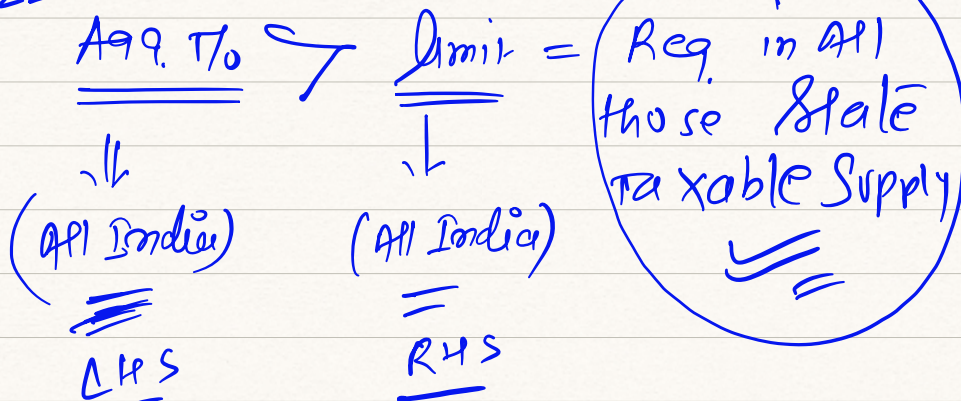 Agg. T/o > limit = Reg. in All
those State
Taxable Supply
(All India) (All India)
LHS RHS